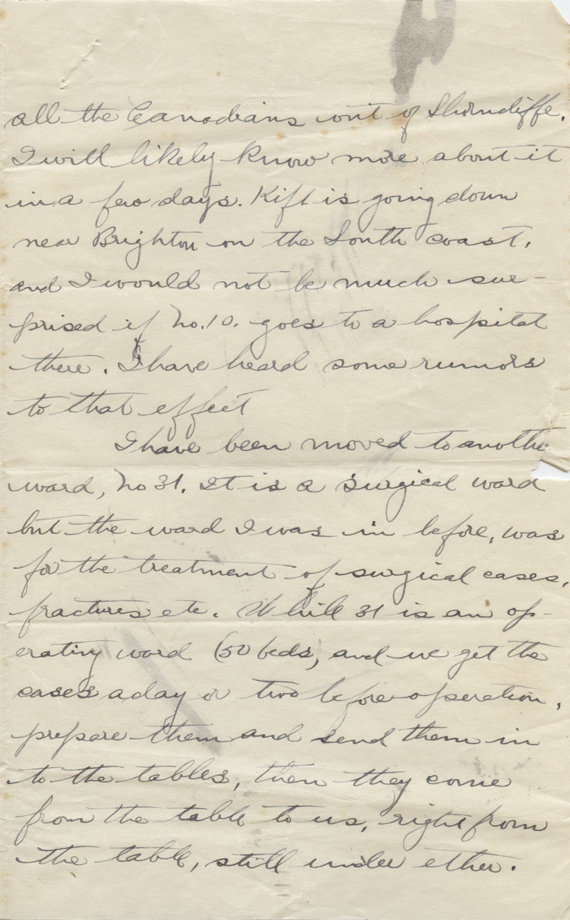 all the Canadians out of Shorncliffe.
I will likely know more about it
in a few days. Kift is going down
near Brighton on the South coast,
and I would not be much sur-
prised if No. 10. goes to a hospital
there. I have heard some rumors
to that effect
I have been moved to anothe
ward, No 31. It is a surgical ward
but the ward I was in before, was
for the treatment of surgical cases,
fractures etc. While 31 is an op-
erating ward (50 beds, and we get the
cases a day or two before operation,
prepare them and send them in
to the tables, then they come
from the table to us, right from
the table, still under ether.